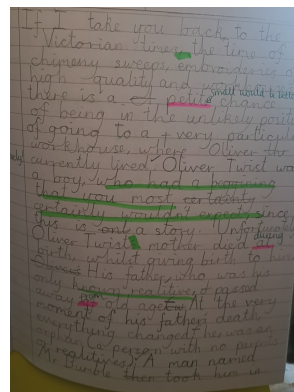 If I take you back to the
Victorian times, the time of
chimney sweeps, embroidery of
high quality and
small would be better
there is a chance
of being in the unlikely
of going to a very particular
workhouse, where Oliver Twist
currently lived, Oliver Twist was
a boy, who had a beginning
that you most certainly
certainly wouldn't expect since
this is only a story. Unfortunately
Oliver Twist mother died at
during
birth, whilst giving birth to him
His father, who was his
only passed
away old age. At the very
moment of his father death
everything changed, he was an
orphan (a person with no
A man named
Mr Bumble then took him